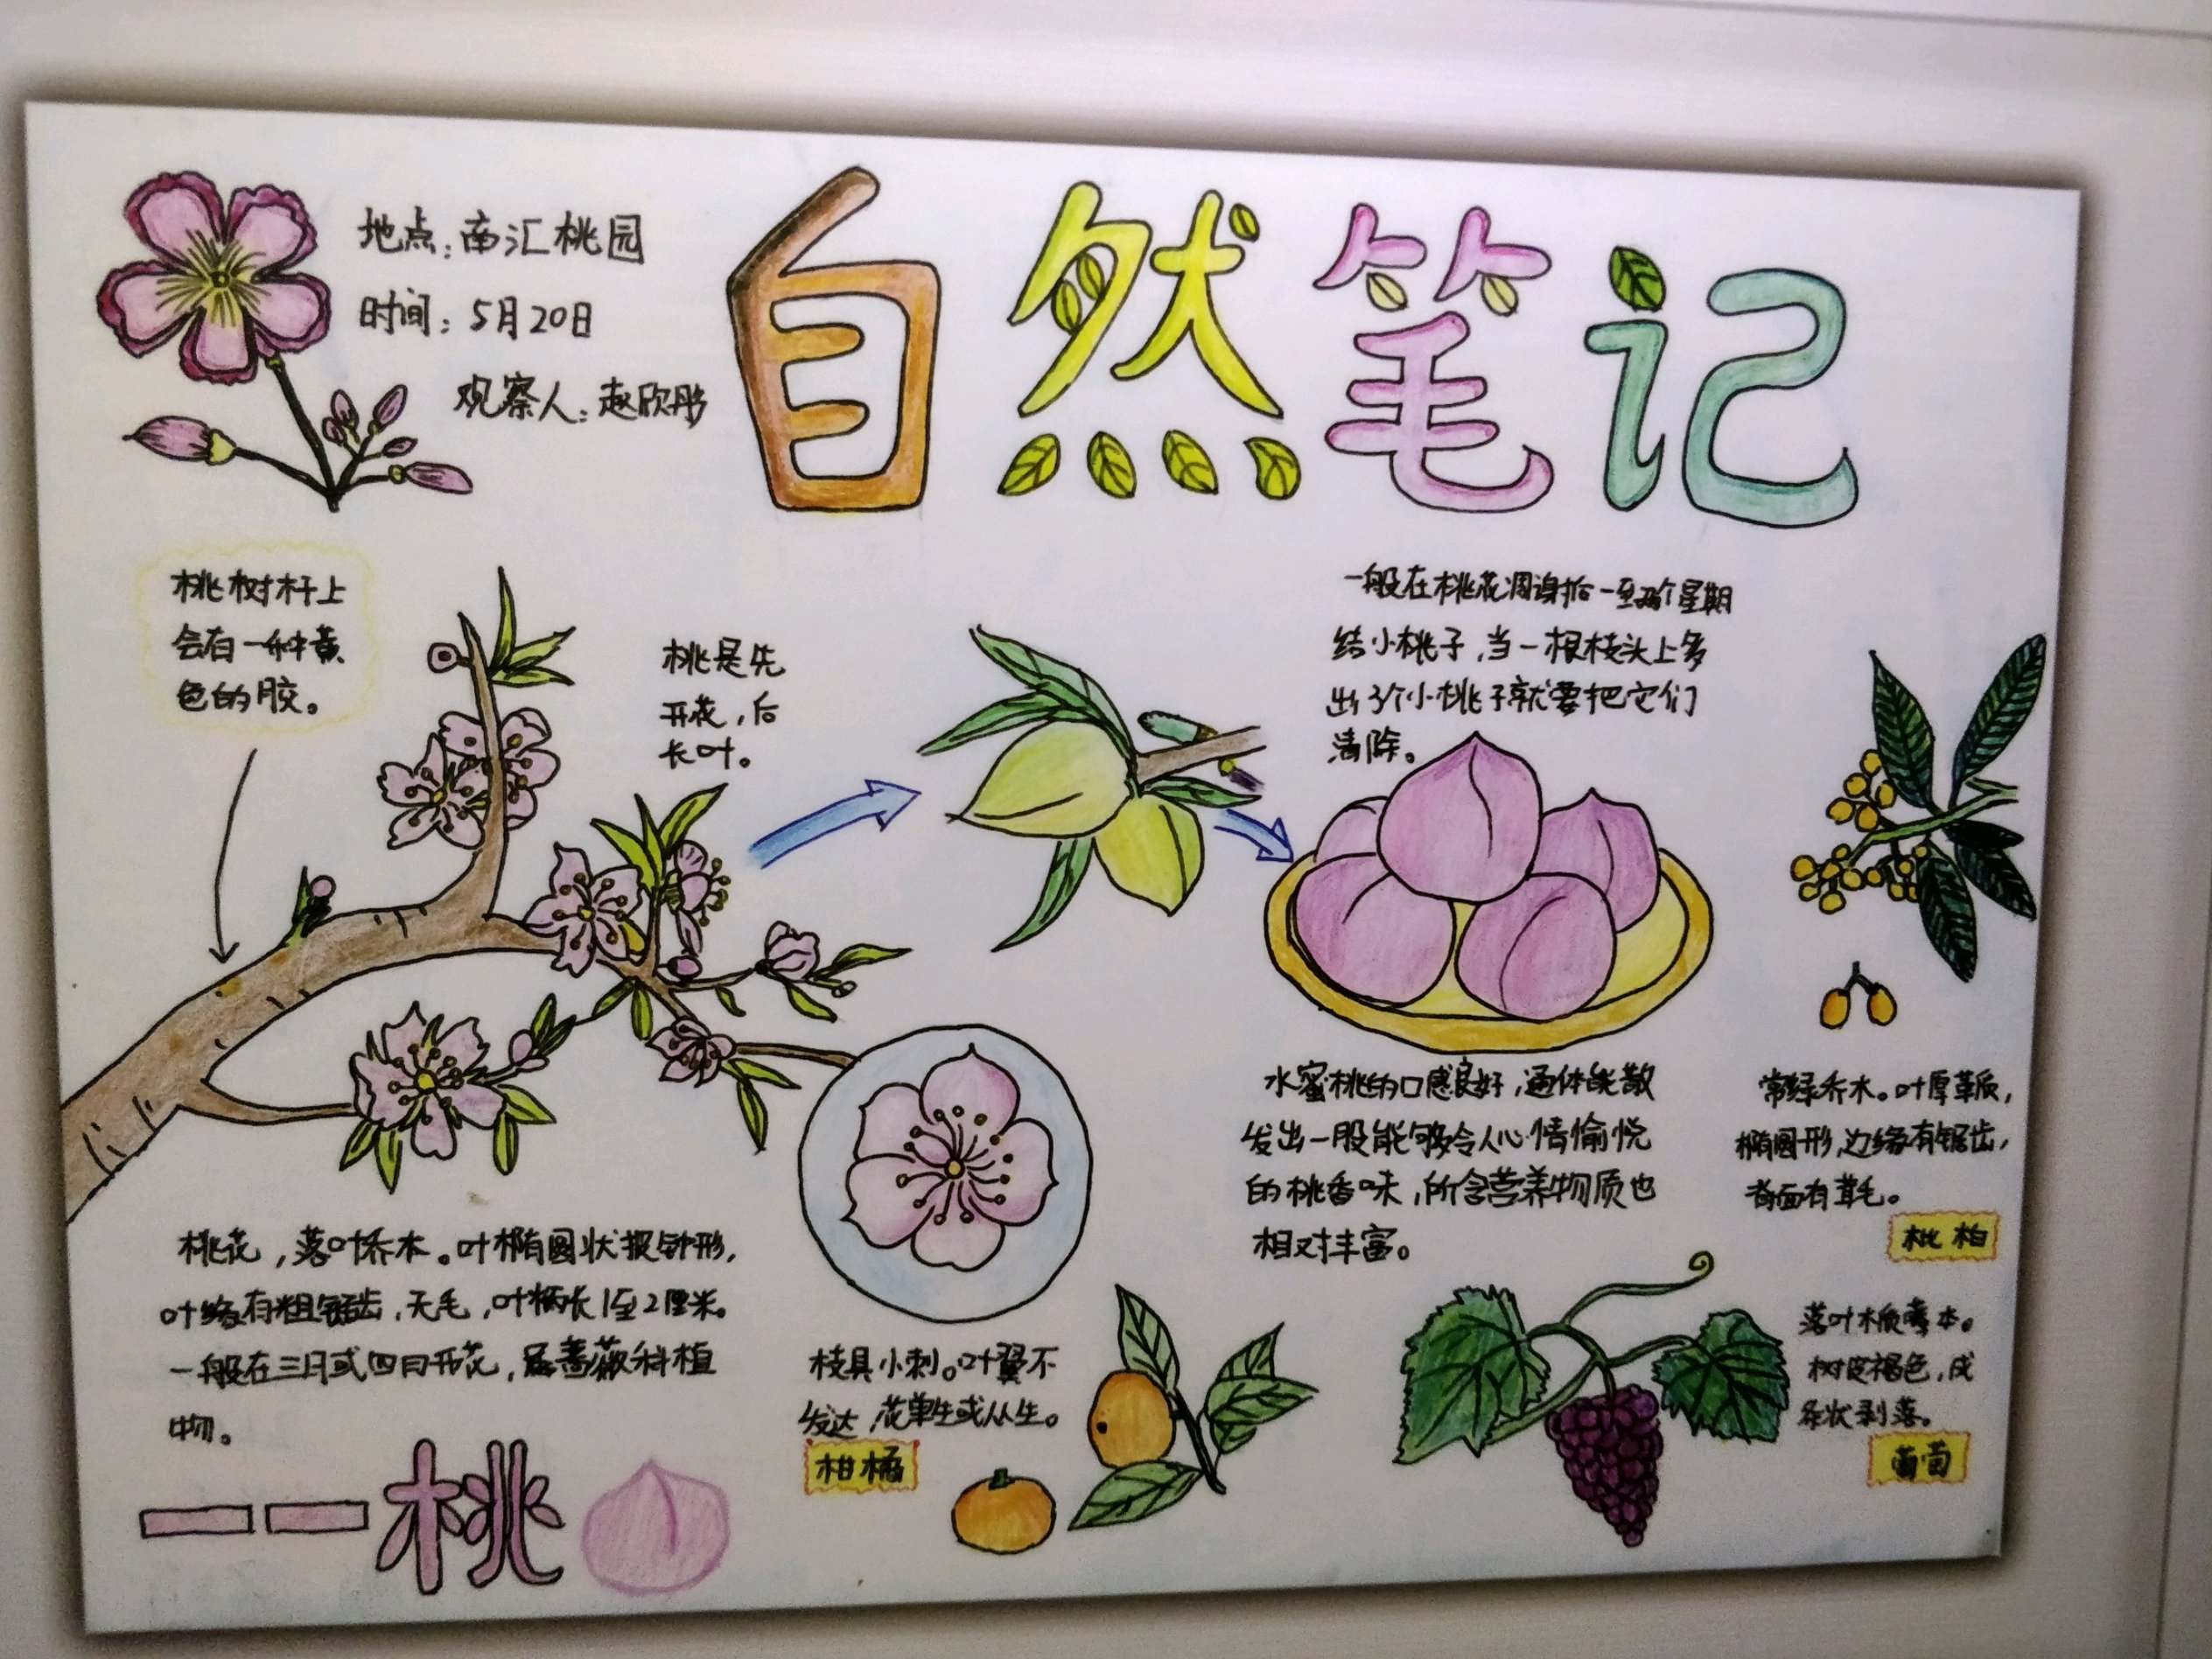 自然笔记
地点：南汇桃园
时间：5月20日
观察人：赵欣彤
桃树杆上
会有一种黄
色的胶。
桃是先
开花，后
长叶。
一般在桃花凋谢后一至两个星期
结小桃子，当一根枝头上多
出3个小桃子就要把它们
清除。
水蜜桃的口感良好，通体能散
发出一股能够令人心情愉悦
的桃香味，所含营养物质也
相对丰富。
常绿乔木。叶厚革质，
椭圆形，边缘有锯齿，
背面有茸毛。
枇杷
桃花，落叶乔木。叶椭圆状披针形，
叶缘有粗锯齿，无毛，叶柄长1至2厘米。
一般在三月或四月开花，属蔷薇科植
物。
一一桃
枝具小刺。叶翼不
发达，花单生或丛生。
柑橘
落叶木质藤本。
树皮褐色，成
条状剥落。
葡萄